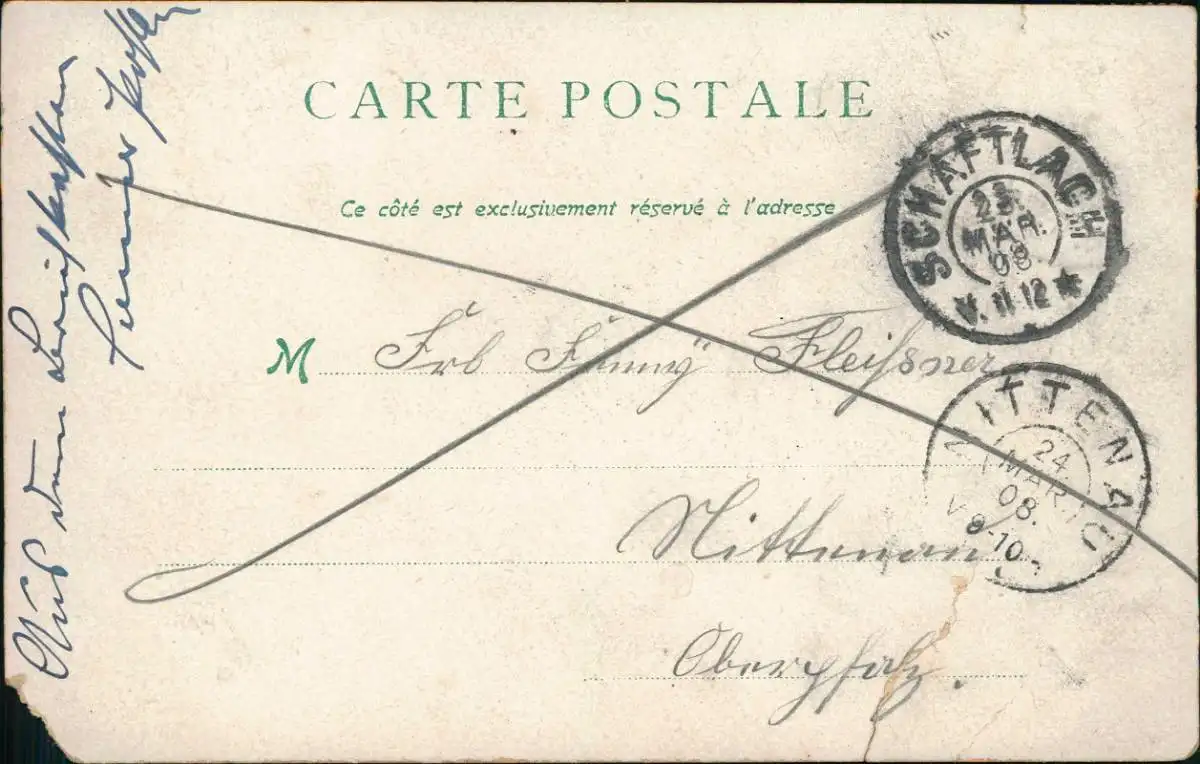 CARTE POSTALE
Ce côté est exclusivement réservé à l'adresse
SCHAFTLACH
23. MAR. 08
V. 11-12
M Frl Fanny Fleißner
NITTENAU
24 MAR 08.
V 8-10
Nittenau
Oberpfalz.
Aus dem